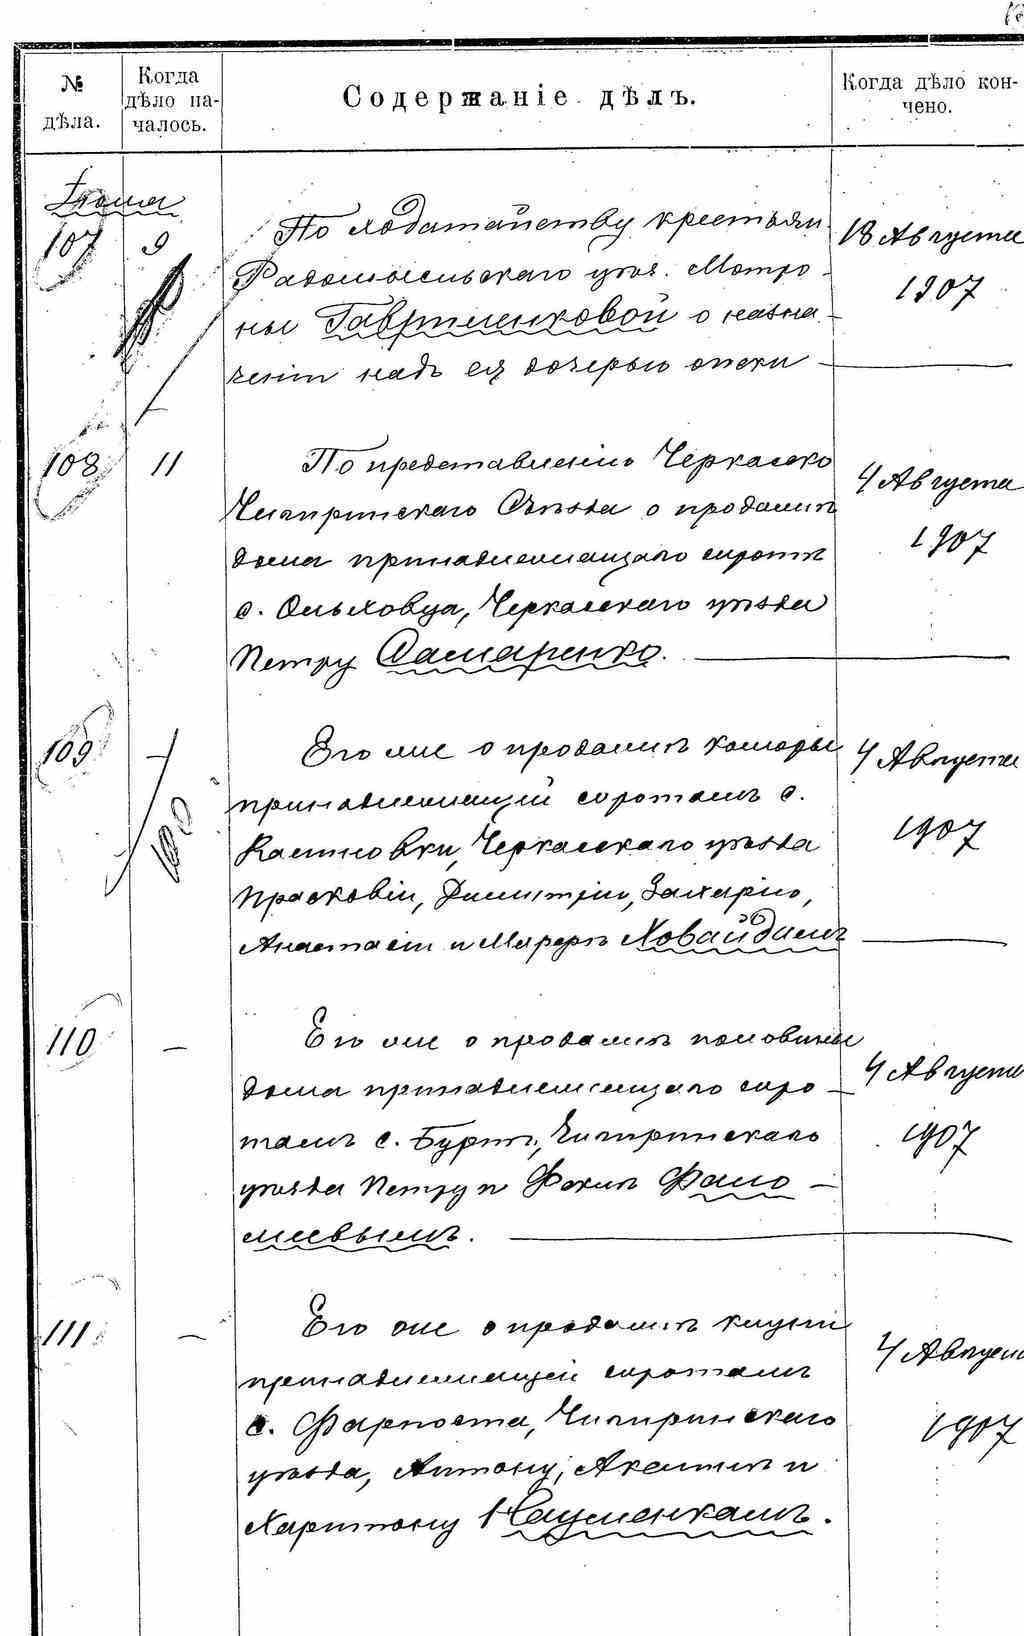 № дѣла.
Когда дѣло на-
чалось.
Содержаніе дѣлъ.
Когда дѣло кон-
чено.
Іюля
107 9 По ходатайству крестьян 18 Августа
Радомысльскаго уѣз. Матро- 1907
ны Гавриленковой о назна-
ченіи надъ ея дочерью опеки
108 11 По представленію Черкасско 4 Августа
Чигиринскаго Съѣзда о продажѣ 1907
дома принадлежащаго сиротѣ
с. Ольховца, Черкасскаго уѣзда
Петру Самаренко.
109 — Его же о продажѣ коморы 4 Августа
принадлежащей сиротамъ с. 1907
Черкасскаго уѣзда
Прасковіи, Дмитрію, Захарію,
Анастасіи и Марѳѣ Ховайдамъ
110 — Его же о продажѣ половины 4 Августа
дома принадлежащаго сиро- 1907
тамъ с. Чигиринскаго
уѣзда Петру и Ѳеклѣ
111 — Его же о продажѣ клуни 4 Август
принадлежащей сиротамъ 1907
с. Фарпоста, Чигиринскаго
уѣзда, Антону, и
Харитону Науменкамъ.